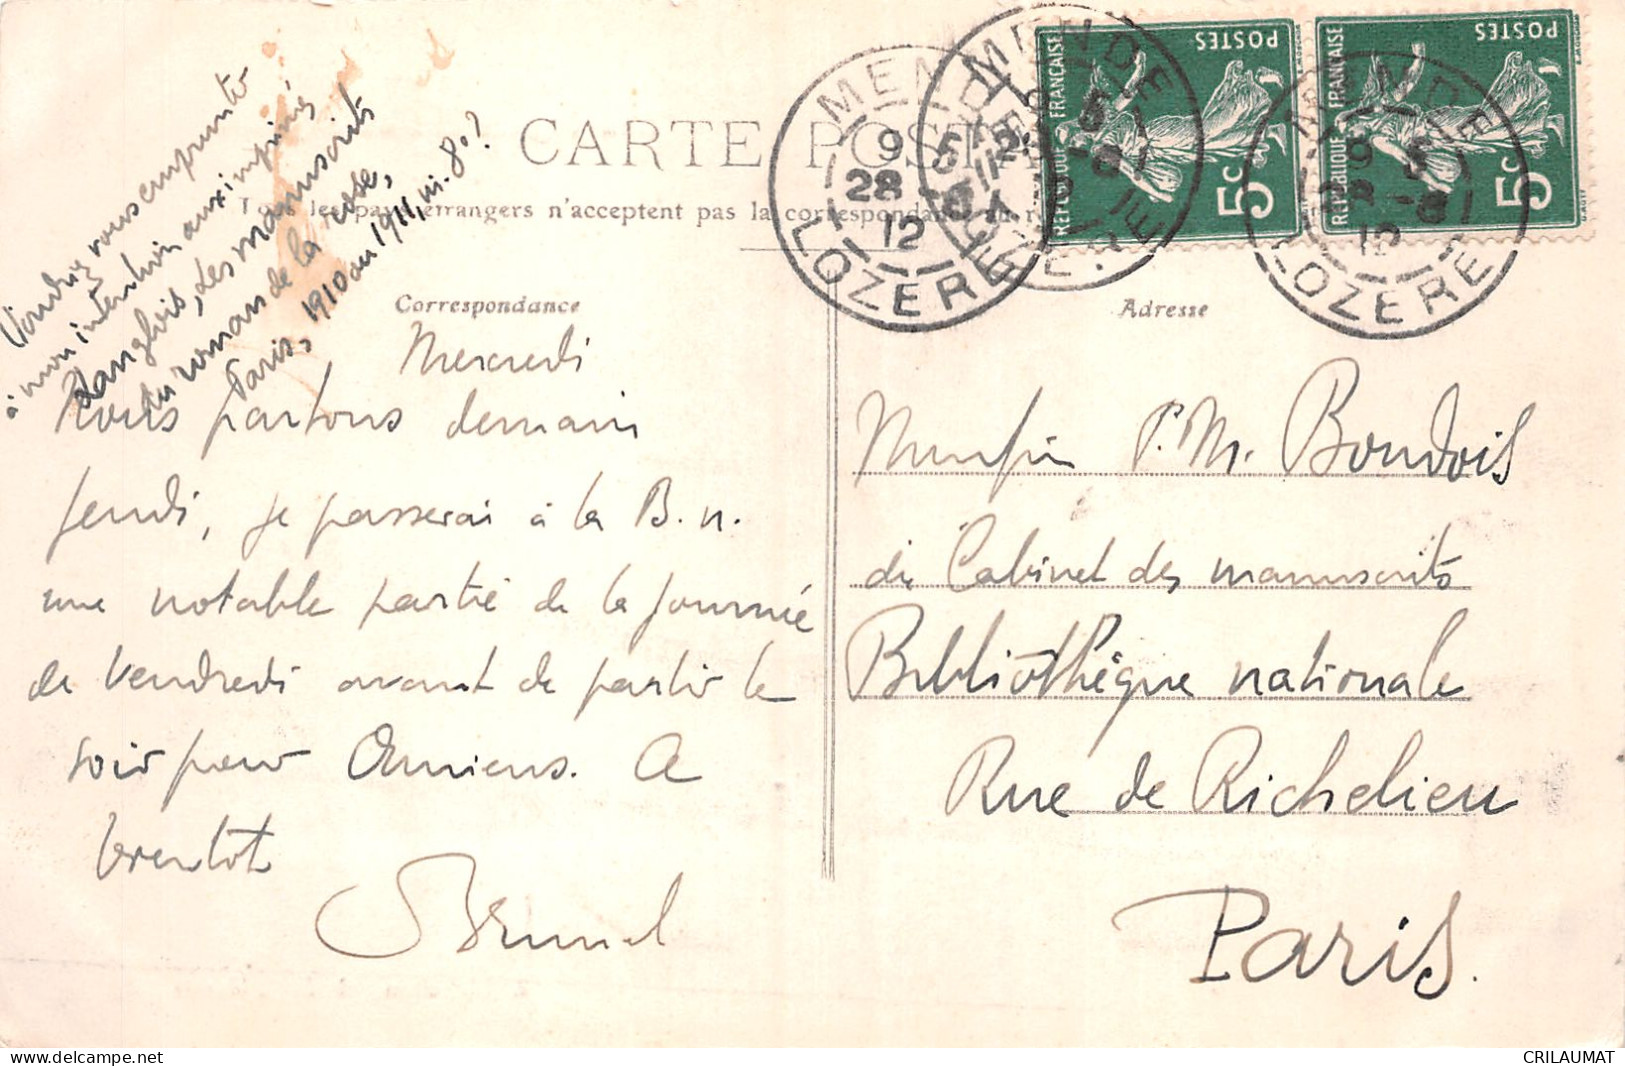 Voudriez vous emprunter
à mon intention aux imprimés
Langlois, Les manuscrits
du roman de la rose,
Paris, 1910 ou 1911, in-8°?
CARTE POSTALE
Tous les pays étrangers n'acceptent pas la correspondance au
Correspondance
Adresse
Mercredi
Nous partons demain
jeudi, je passerai à la B. n.
une notable partie de la journée
de vendredi avant de partir le
soir pour Amiens. A
bientôt
Brunel
Monsieur P. M. Bondois
du Cabinet des manuscrits
Bibliothèque nationale
Rue de Richelieu
Paris.
MENDE
9 5
28 -8
12
LOZERE
MENDE
LOZERE
MENDE
9 5
28 -8
12
LOZERE
REPUBLIQUE FRANÇAISE
POSTES
5c
REPUBLIQUE FRANÇAISE
POSTES
5c
www.delcampe.net
CRILAUMAT